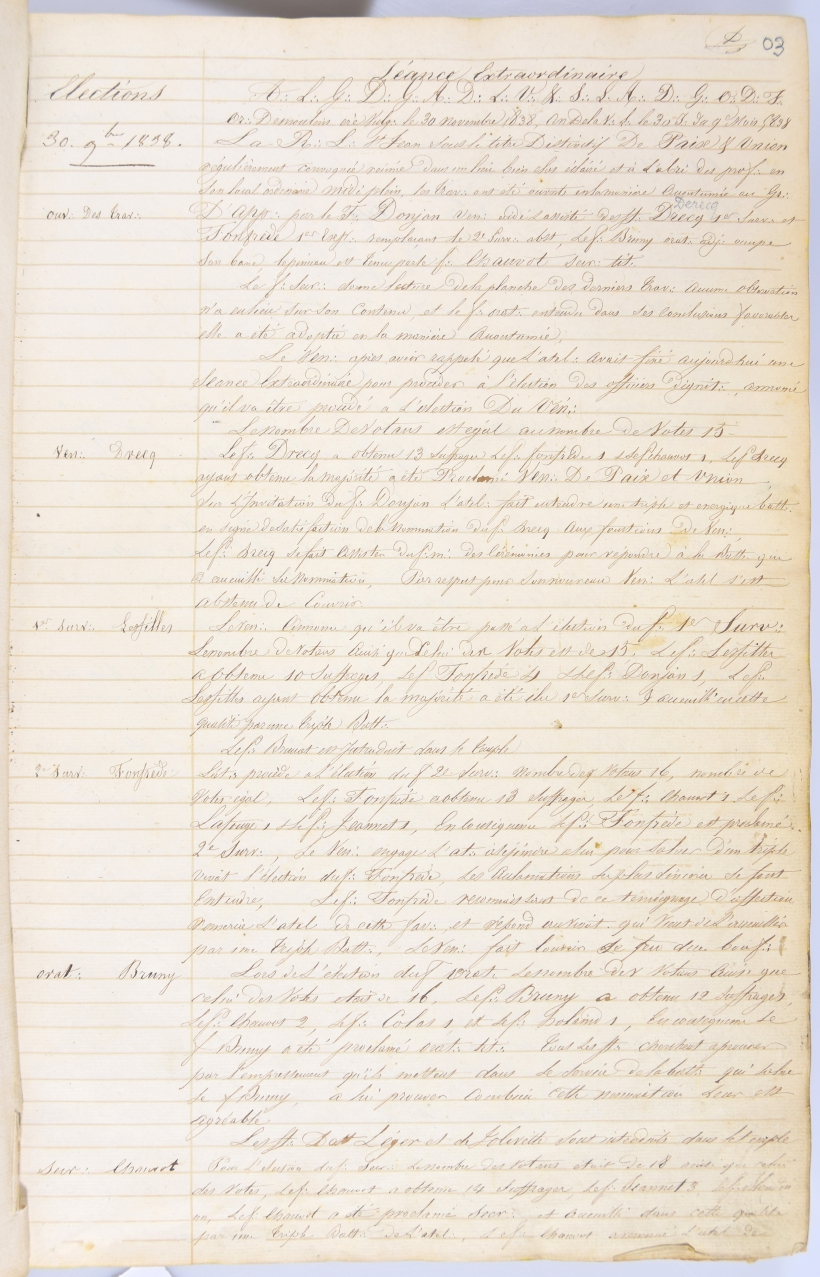 03
Séance Extraordinaire
Elections
A∴ L∴ G∴ D∴ G∴ A∴ D∴ L∴ V∴ & S∴ L∴ A∴ D∴ G∴ O∴ D∴ F∴
le 30 novembre 1838
30. 9bre 1838.
La R∴ L∴ St Jean Sous le titre Distinctif De Paix & Union
régulièrement convoquée réunie dans un lieu bien éclairé et à l'abri des prof∴ en
Son local ordinaire midi plein, les trav∴ ont été ouverts en la manière Accoutumée au Gr∴
Derecq
ouv∴ Des trav∴
D'App∴ par le F∴ Donjan Ven∴ assisté des ff∴ Drecq 1er Surv∴ et
Fonfrède 1er Exp∴ remplaçant le 2e Surv∴ abst∴ Le f∴ Bruny orat∴ adj∴ occupe
Son banc le pinceau est tenu par le f∴ Chauvot Secr∴ tit∴
Le f∴ Secr∴ donne lecture de la planche des derniers trav∴ aucune observation
n'a eu lieu sur son contenu, et le f∴ orat∴ entendu dans ses conclusions favorables
elle a été adoptée en la manière Accoutumée.
Le Ven∴ après avoir rappelé que l'atel∴ avait fixé aujourd'hui une
Séance Extraordinaire pour procéder à l'élection des officiers dignit∴, annonce
qu'il va être procédé a L'élection Du Vén∴
Le nombre De Votans est égal au nombre de Votes 15
Ven∴ Drecq
Le f∴ Drecq a obtenu 13 suffrages Le f∴ fonfrède 1 & le f∴ chauvot 1, Le f∴ Drecq
ayant obtenu la majorité a été Proclamé Ven∴ De Paix et Union
Sur L'Invitation du f∴ Donjan L'atel∴ fait entendre une triple et energique batt∴
en signe de satisfaction de la nomination du f∴ Drecq aux fonctions de Ven∴
Le f∴ Drecq se fait assister du f∴ m∴ des Cérémonies pour répondre à la Batt∴ qui
a accueilli sa nomination. Par respect pour son nouveau Ven∴ L'atel s'est
abstenu de Couvrir
1er Surv∴ Lespilles
Le Ven∴ annonce qu'il va être passé a L'élection du f∴ 1er Surv∴
Le nombre de votans ainsi que celui des Votes est de 15. Le f∴
a obtenu 10 Suffrages Le f∴ Fonfrède 4 & le f∴ Donjan 1, Le f∴
ayant obtenu la majorité a été élu 1er Surv∴ & accueilli en cette
qualité par une triple Batt∴
Le f∴ Bruno est Introduit dans le temple
2e Surv∴ Fonfrède
Il est procédé a L'élection du f∴ 2e Surv∴ nombre des Votans 16, nombre de
Votes égal. Le f∴ Fonfrède a obtenu 13 suffrages, Le f∴ Chauvot 1 Le f∴
1 & le f∴ Jeannet 1, En conséquence le f∴ Fonfrède est proclamé
2e Surv∴, Le Ven∴ engage L'at∴ a se joindre a lui pour saluer d'un triple
vivat l'élection du f∴ Fonfrède, Les acclamations les plus sincères se font
Entendre, Le f∴ Fonfrède reconnaissant de ce témoignage d'affection
remercie L'atel de cette fav∴ et répond au vivat qui vient de l'accueillir
par une triple Batt∴ Le Ven∴ fait couvrir
orat∴ Bruny
Lors de L'élection du f∴ orat∴ Le nombre des Votans ainsi que
celui des Votes était de 16. Le f∴ Bruny a obtenu 12 suffrages,
Le f∴ Chauvot 2, Le f∴ Colas 1 et le f∴ 1, En conséquence Le
f∴ Bruny a été proclamé orat∴ tit∴ Tous Les ff∴ cherchent a prouver
par l'empressement qu'ils mettent dans de la batt∴ qui salue
le f∴ Bruny, a lui prouver combien cette nomination leur est
agréable.
Les ff∴ Léger et de sont introduits dans le temple
Secr∴ Chauvot
Pour L'élection du f∴ Secr∴ Le nombre des votans était de 18 ainsi que celui
des Votes, Le f∴ Chauvot a obtenu 14 Suffrages Le f∴ Jeannet 3
un, Le f∴ Chauvot a été proclamé Secr∴, et accueilli dans cette qualité
par une triple Batt∴ de L'atel∴, Le f∴ Chauvot a remercié L'atel de